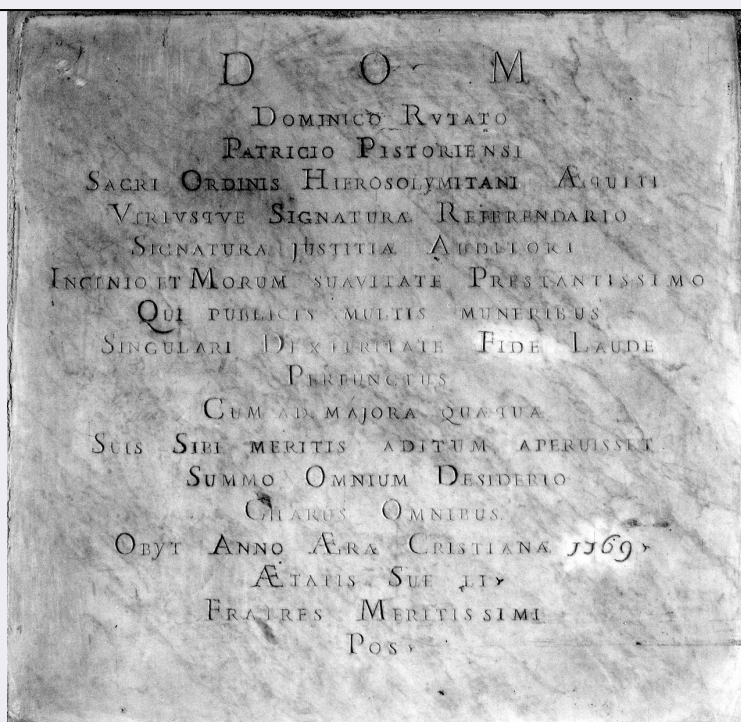 D O M
DOMINICO RVTATO
PATRICIO PISTORIENSI
SACRI ORDINIS HIEROSOLYMITANI ÆQUITI
VTRIVSQVE SIGNATURÆ REFERENDARIO
SIGNATURA JUSTITIÆ AUDITORI
INGINIO ET MORUM SUAVITATE PRESTANTISSIMO
QUI PUBLICIS MULTIS MUNERIBUS
SINGULARI DEXTERITATE FIDE LAUDE
PERFUNCTUS
CUM AD MAJORA QUÆQUÆ
SUIS SIBI MERITIS ADITUM APERUISSET
SUMMO OMNIUM DESIDERIO
CHARUS OMNIBUS
OBYT ANNO ÆRÆ CRISTIANÆ 1769
ÆTATIS SUE LI
FRATRES MERITISSIMI
POS